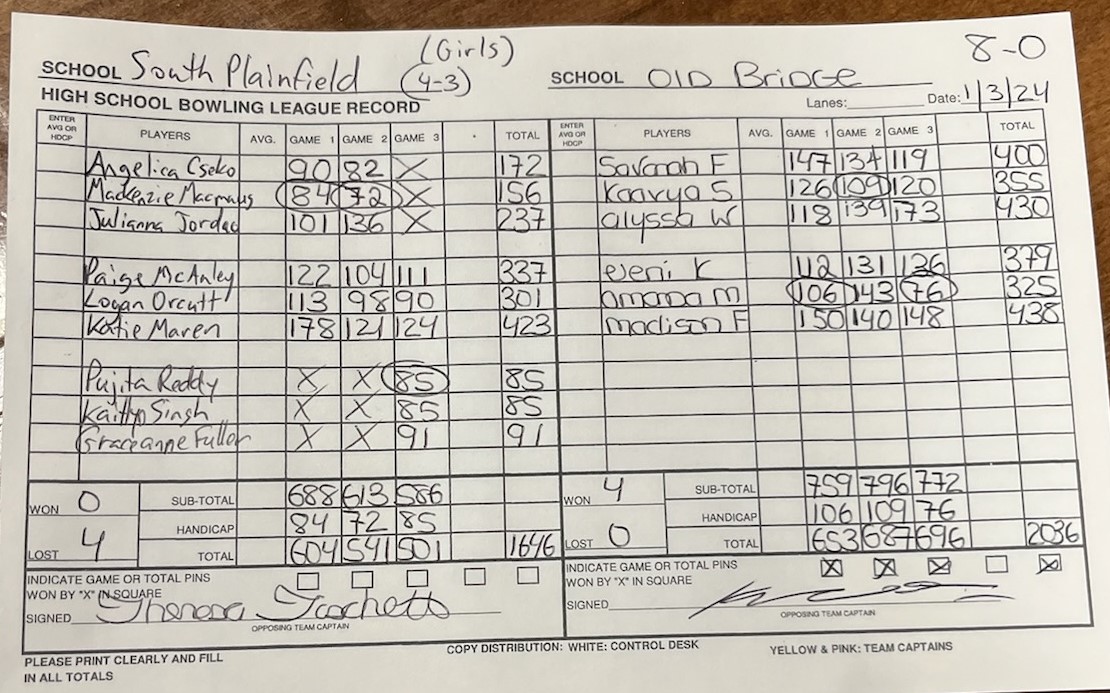 (Girls) 8-0
SCHOOL South Plainfield (4-3) SCHOOL Old Bridge
HIGH SCHOOL BOWLING LEAGUE RECORD Lanes: Date: 1/3/24
ENTER AVG OR HDCP PLAYERS AVG. GAME 1 GAME 2 GAME 3 TOTAL ENTER AVG OR HDCP PLAYERS AVG. GAME 1 GAME 2 GAME 3 TOTAL
Angelica Cseko 90 82 X 172 Savannah F 147 134 119 400
Mackenzie Macmanus 84 72 X 156 Kaavya S 126 109 120 355
Julianna Jordao 101 136 X 237 alyssa W 118 139 173 430
Paige McAnley 122 104 111 337 eveni K 112 131 136 379
Logan Orcutt 113 98 90 301 amana m 106 143 76 325
Katie Maren 178 121 124 423 madison F 150 140 148 438
Pujita Reddy X X 85 85
Kaitlyn Singh X X 85 85
Graceanne Fuller X X 91 91
WON 0 SUB-TOTAL 688 613 586 WON 4 SUB-TOTAL 759 796 772
HANDICAP 84 72 85 HANDICAP 106 109 76
LOST 4 TOTAL 604 541 501 1646 LOST 0 TOTAL 653 687 696 2036
INDICATE GAME OR TOTAL PINS INDICATE GAME OR TOTAL PINS
WON BY "X" IN SQUARE WON BY "X" IN SQUARE X X X X
SIGNED Theresa SIGNED
OPPOSING TEAM CAPTAIN OPPOSING TEAM CAPTAIN
PLEASE PRINT CLEARLY AND FILL COPY DISTRIBUTION: WHITE: CONTROL DESK YELLOW & PINK: TEAM CAPTAINS
IN ALL TOTALS